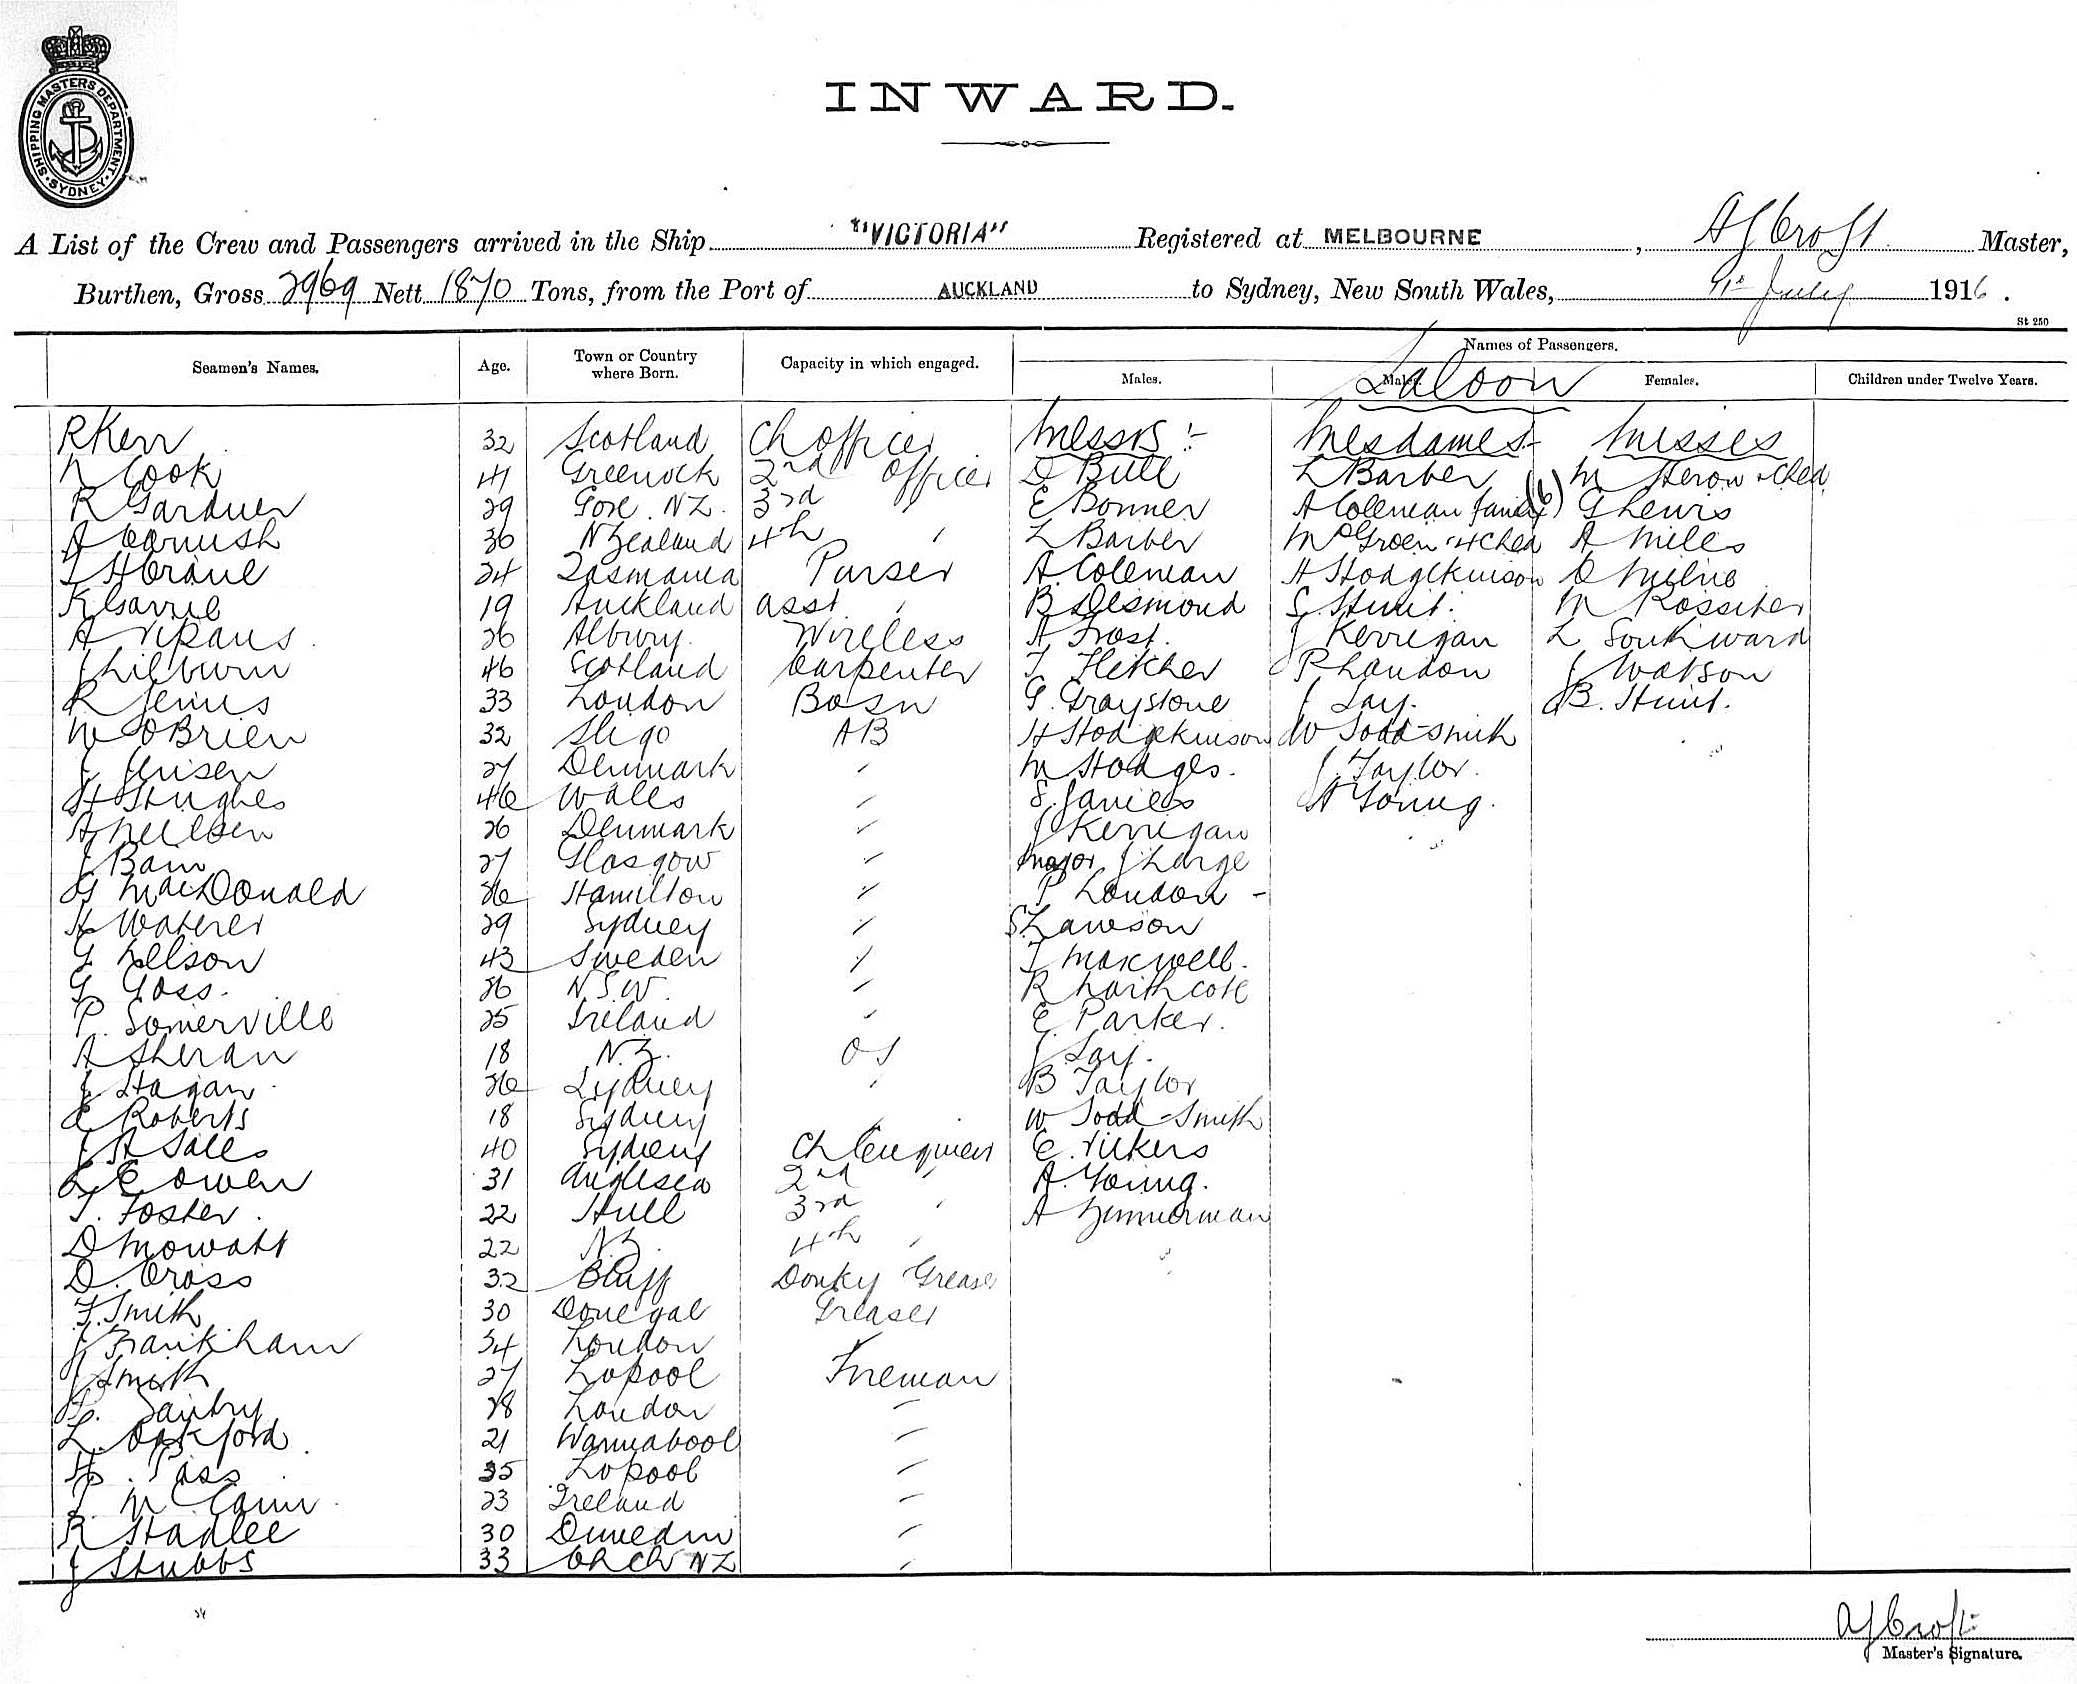 SHIPPING MASTERS DEPARTMENT. SYDNEY
INWARD.
A List of the Crew and Passengers arrived in the Ship "VICTORIA" Registered at MELBOURNE, AJ Croft Master,
Burthen, Gross 2969 Nett 1870 Tons, from the Port of AUCKLAND to Sydney, New South Wales, July 1916.
St 250
Seamen's Names. Age. Town or Country where Born. Capacity in which engaged. Names of Passengers.
Saloon
Males. Males. Females. Children under Twelve Years.
R Kerr 32 Scotland Ch Officer Messrs :- Mesdames- Misses
N Cook 41 Greenock 2nd Officer D Bull L Barber M Heron + Chld
R Gardner 29 Gore. N.Z. 3rd E Bonner A Coleman family (6) G Lewis
A Cornish 36 N Zealand 4th " L Barber Mc Green + 4 Chld A Mills
24 Tasmania Purser A. Coleman H Hodgekinson D Milne
19 Auckland asst " B Desmond S. Hunt. M Rossiter
A 26 Albury. Wireless A Frost. J Kerrigan L Southward
J Lilburn 46 Scotland Carpenter T Fletcher P London J Watson
R 33 London Bosn G. Graystone J B. Hunt.
M OBrien 32 Sligo AB H Hodgekinson W Todd-Smith
J Jensen 27 Denmark " M Hodges. J. Taylor.
H Hughes 46 Wales " S. A Young.
A Neilsen 26 Denmark " J Kerrigan
J. Bain 27 Glasgow " Major J Large
G MacDonald 26 Hamilton " P London -
H Waterer 29 Sydney " S. Lawson
G Nelson 43 Sweden " T Maxwell.
G Goss. 26 N.S.W. " R Northcote
P. Somerville 25 Ireland " E. Parker.
A Sheran 18 N.Z. OS J
J Hagan 26 Sydney " B Taylor
E Roberts 18 Sydney " W Todd-Smith
J A Salls 40 Sydney Ch Engineer E. Vickers
E Owen 31 Anglesea 2nd " A. Young.
T. Foster. 22 Hull 3rd " A Zimmerman
D Mowatt 22 N.Z. 4th "
D. Cross 32 Bluff Donky Greaser
F. Smith 30 Donegal Greaser
J Frankham 34 London
J Smith 27 Lopool Fireman
28 London "
L. Oakford 21 Warnabool "
H. Pass 35 Lopool "
J. McCann 23 Ireland "
R Hadlee 30 Dunedin "
J Stubbs 33 ChCh NZ "
AJ Croft
Master's Signature.